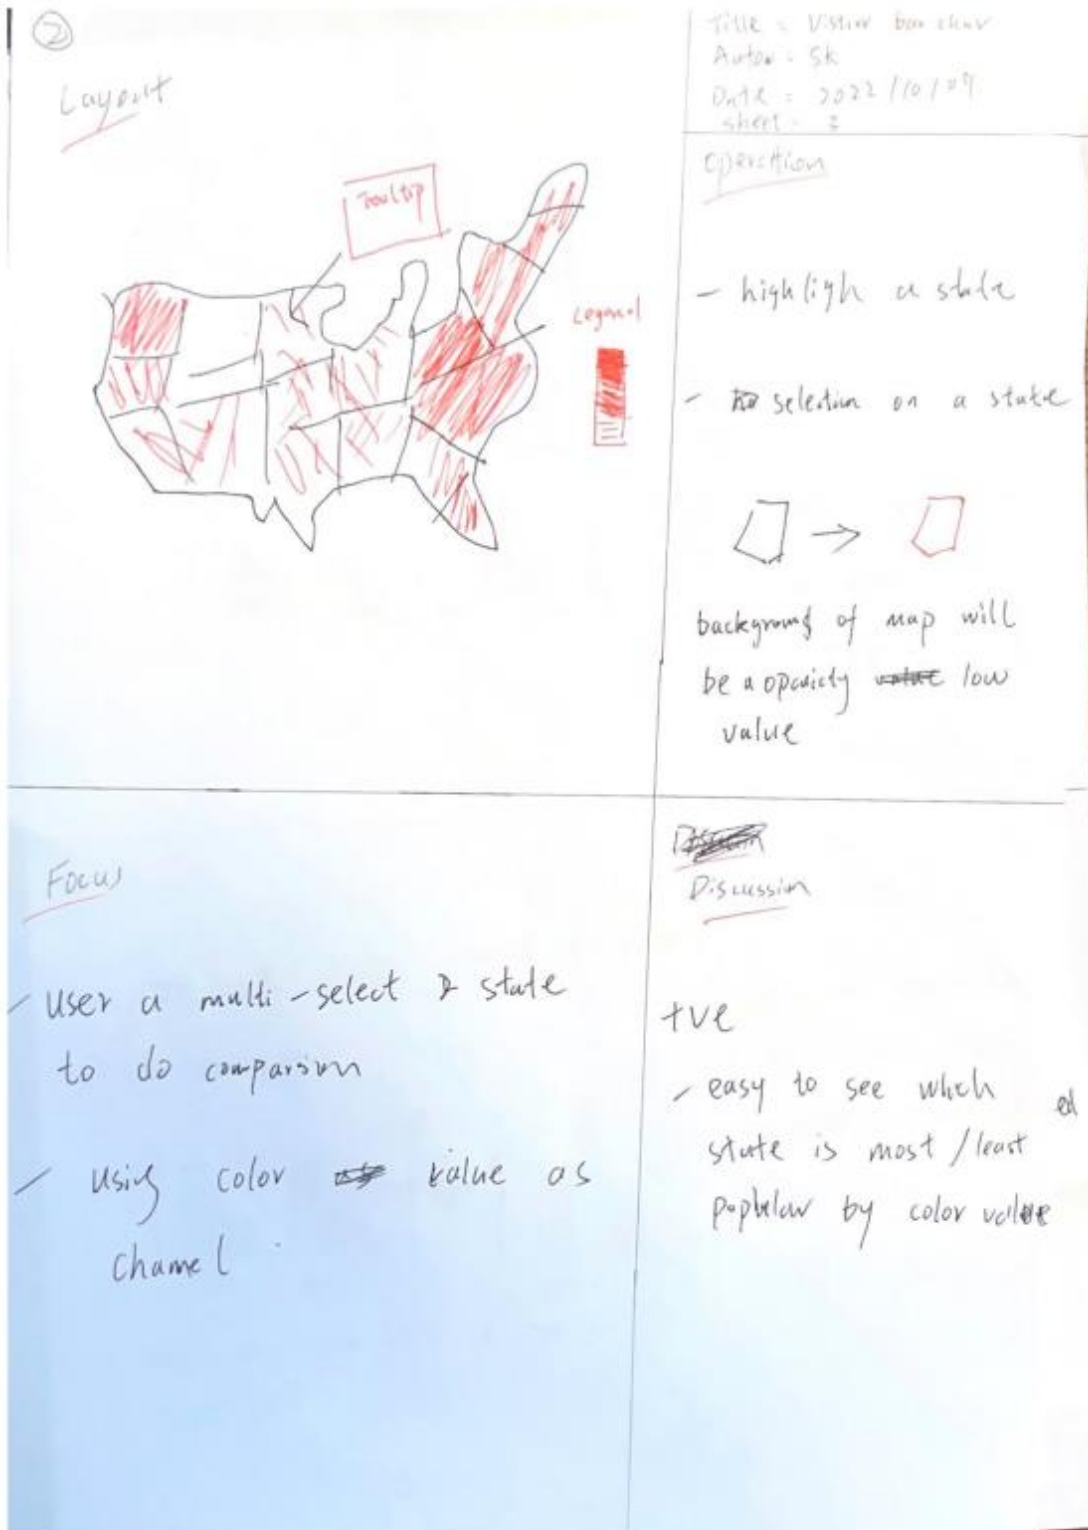 ②
Layout
Tooltip
Legend
Title = Vistior bar char
Autor = Sk
Date = 2022/10/09
sheet = 2
operation
- highligh a state
- selection on a state
background of map will
be a low
value
Focus
- user a multi-select state
to do comparsion
- using color value as
channel
Discussion
+ve
- easy to see which
state is most/least
by color value
ed